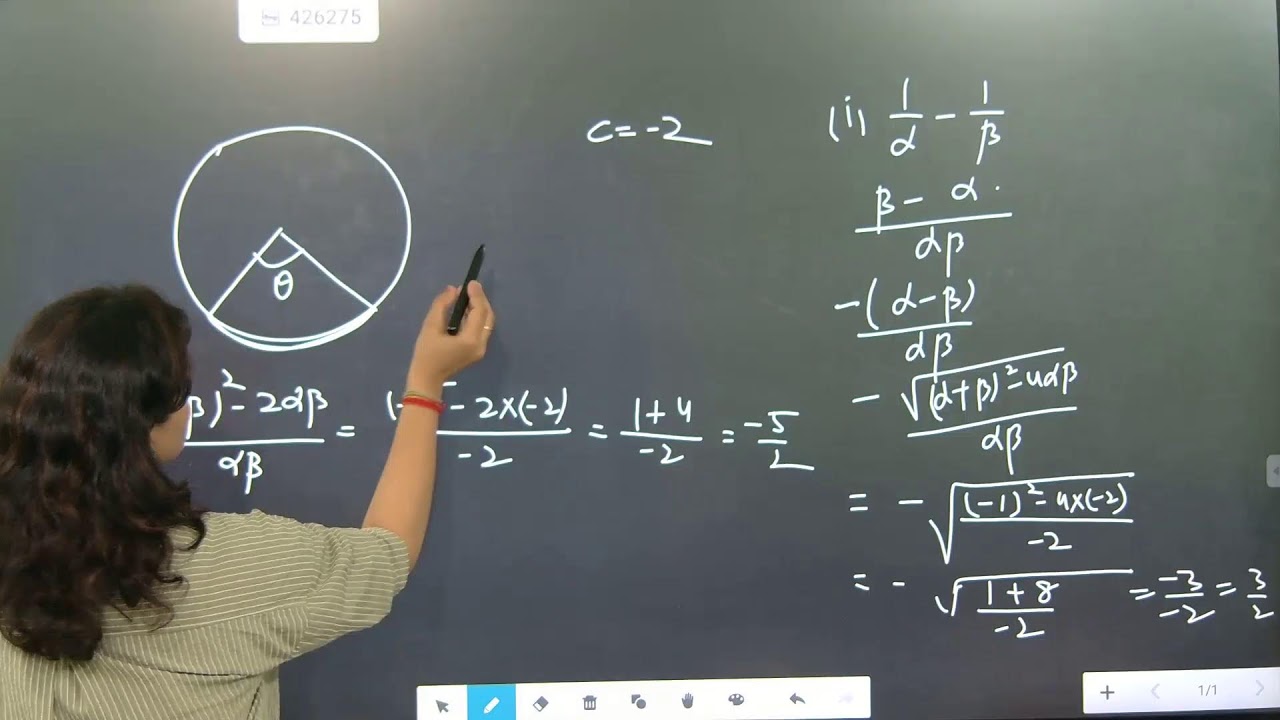 426275
c = -2
θ
β)² - 2αβ / αβ = (- - 2×(-2) / -2 = 1+4 / -2 = -5/2
(i) 1/α - 1/β
β - α / αβ
-(α-β) / αβ
- √(α+β)² - 4αβ / αβ
= - √(-1)² - 4×(-2) / -2
= - √1+8 / -2 = -3/-2 = 3/2
1/1